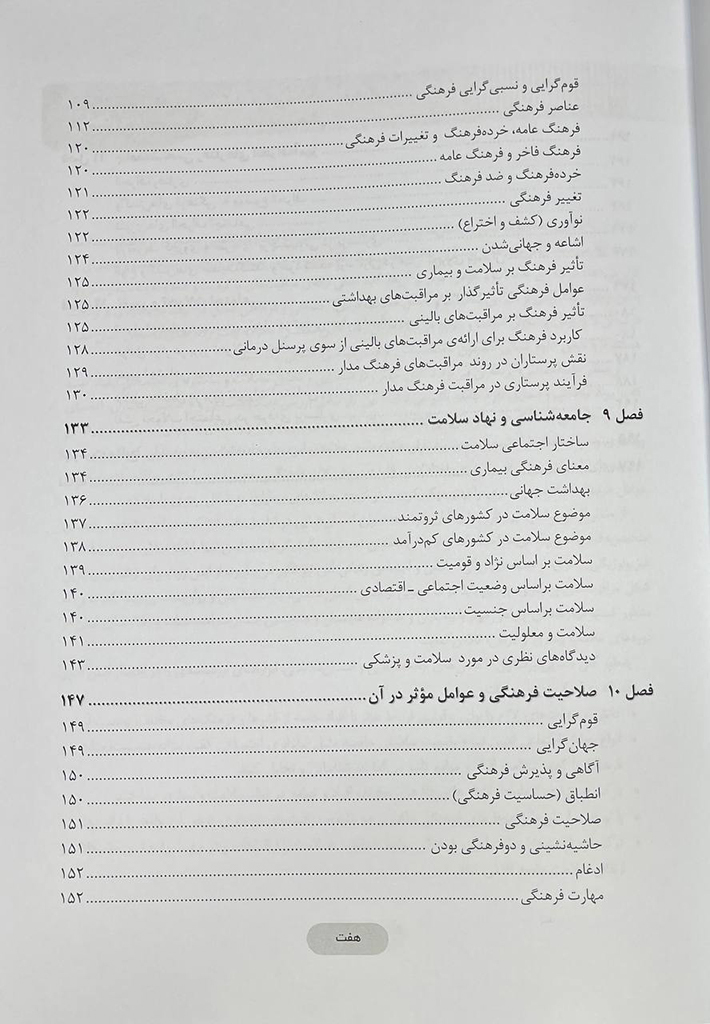 قوم‌گرایی و نسبی‌گرایی فرهنگی ........ ۱۰۹
عناصر فرهنگی ........ ۱۱۲
فرهنگ عامه، خرده‌فرهنگ و تغییرات فرهنگی ........ ۱۲۰
فرهنگ فاخر و فرهنگ عامه ........ ۱۲۰
خرده‌فرهنگ و ضد فرهنگ ........ ۱۲۱
تغییر فرهنگی ........ ۱۲۲
نوآوری (کشف و اختراع) ........ ۱۲۲
اشاعه و جهانی‌شدن ........ ۱۲۴
تأثیر فرهنگ بر سلامت و بیماری ........ ۱۲۵
عوامل فرهنگی تأثیرگذار بر مراقبت‌های بهداشتی ........ ۱۲۵
تأثیر فرهنگ بر مراقبت‌های بالینی ........ ۱۲۵
کاربرد فرهنگ برای ارائه‌ی مراقبت‌های بالینی از سوی پرسنل درمانی ........ ۱۲۸
نقش پرستاران در روند مراقبت‌های فرهنگ مدار ........ ۱۲۹
فرآیند پرستاری در مراقبت فرهنگ مدار ........ ۱۳۰
فصل ۹ جامعه‌شناسی و نهاد سلامت ........ ۱۳۳
ساختار اجتماعی سلامت ........ ۱۳۴
معنای فرهنگی بیماری ........ ۱۳۴
بهداشت جهانی ........ ۱۳۶
موضوع سلامت در کشورهای ثروتمند ........ ۱۳۷
موضوع سلامت در کشورهای کم‌درآمد ........ ۱۳۸
سلامت بر اساس نژاد و قومیت ........ ۱۳۹
سلامت براساس وضعیت اجتماعی ـ اقتصادی ........ ۱۴۰
سلامت براساس جنسیت ........ ۱۴۰
سلامت و معلولیت ........ ۱۴۱
دیدگاه‌های نظری در مورد سلامت و پزشکی ........ ۱۴۳
فصل ۱۰ صلاحیت فرهنگی و عوامل مؤثر در آن ........ ۱۴۷
قوم‌گرایی ........ ۱۴۹
جهان‌گرایی ........ ۱۴۹
آگاهی و پذیرش فرهنگی ........ ۱۵۰
انطباق (حساسیت فرهنگی) ........ ۱۵۰
صلاحیت فرهنگی ........ ۱۵۱
حاشیه‌نشینی و دوفرهنگی بودن ........ ۱۵۱
ادغام ........ ۱۵۲
مهارت فرهنگی ........ ۱۵۲
هفت